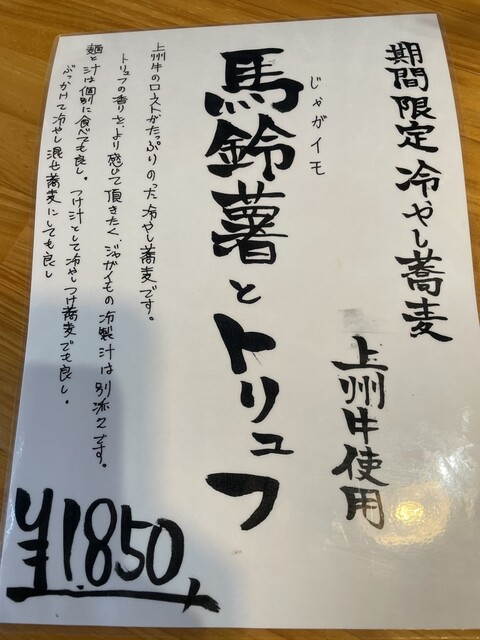 期間限定 冷やし蕎麦
上州牛使用
じゃがイモ
馬鈴薯とトリュフ
上州牛のローストがたっぷりのった冷やし蕎麦です。
トリュフの香りをより感じて頂きたくジャガイモの冷製汁は別添えです。
麺と汁は個別に食べても良し。つけ汁として冷やしつけ蕎麦でも良し。
ぶっかけて冷やし混せ蕎麦にしても良し
¥1.850